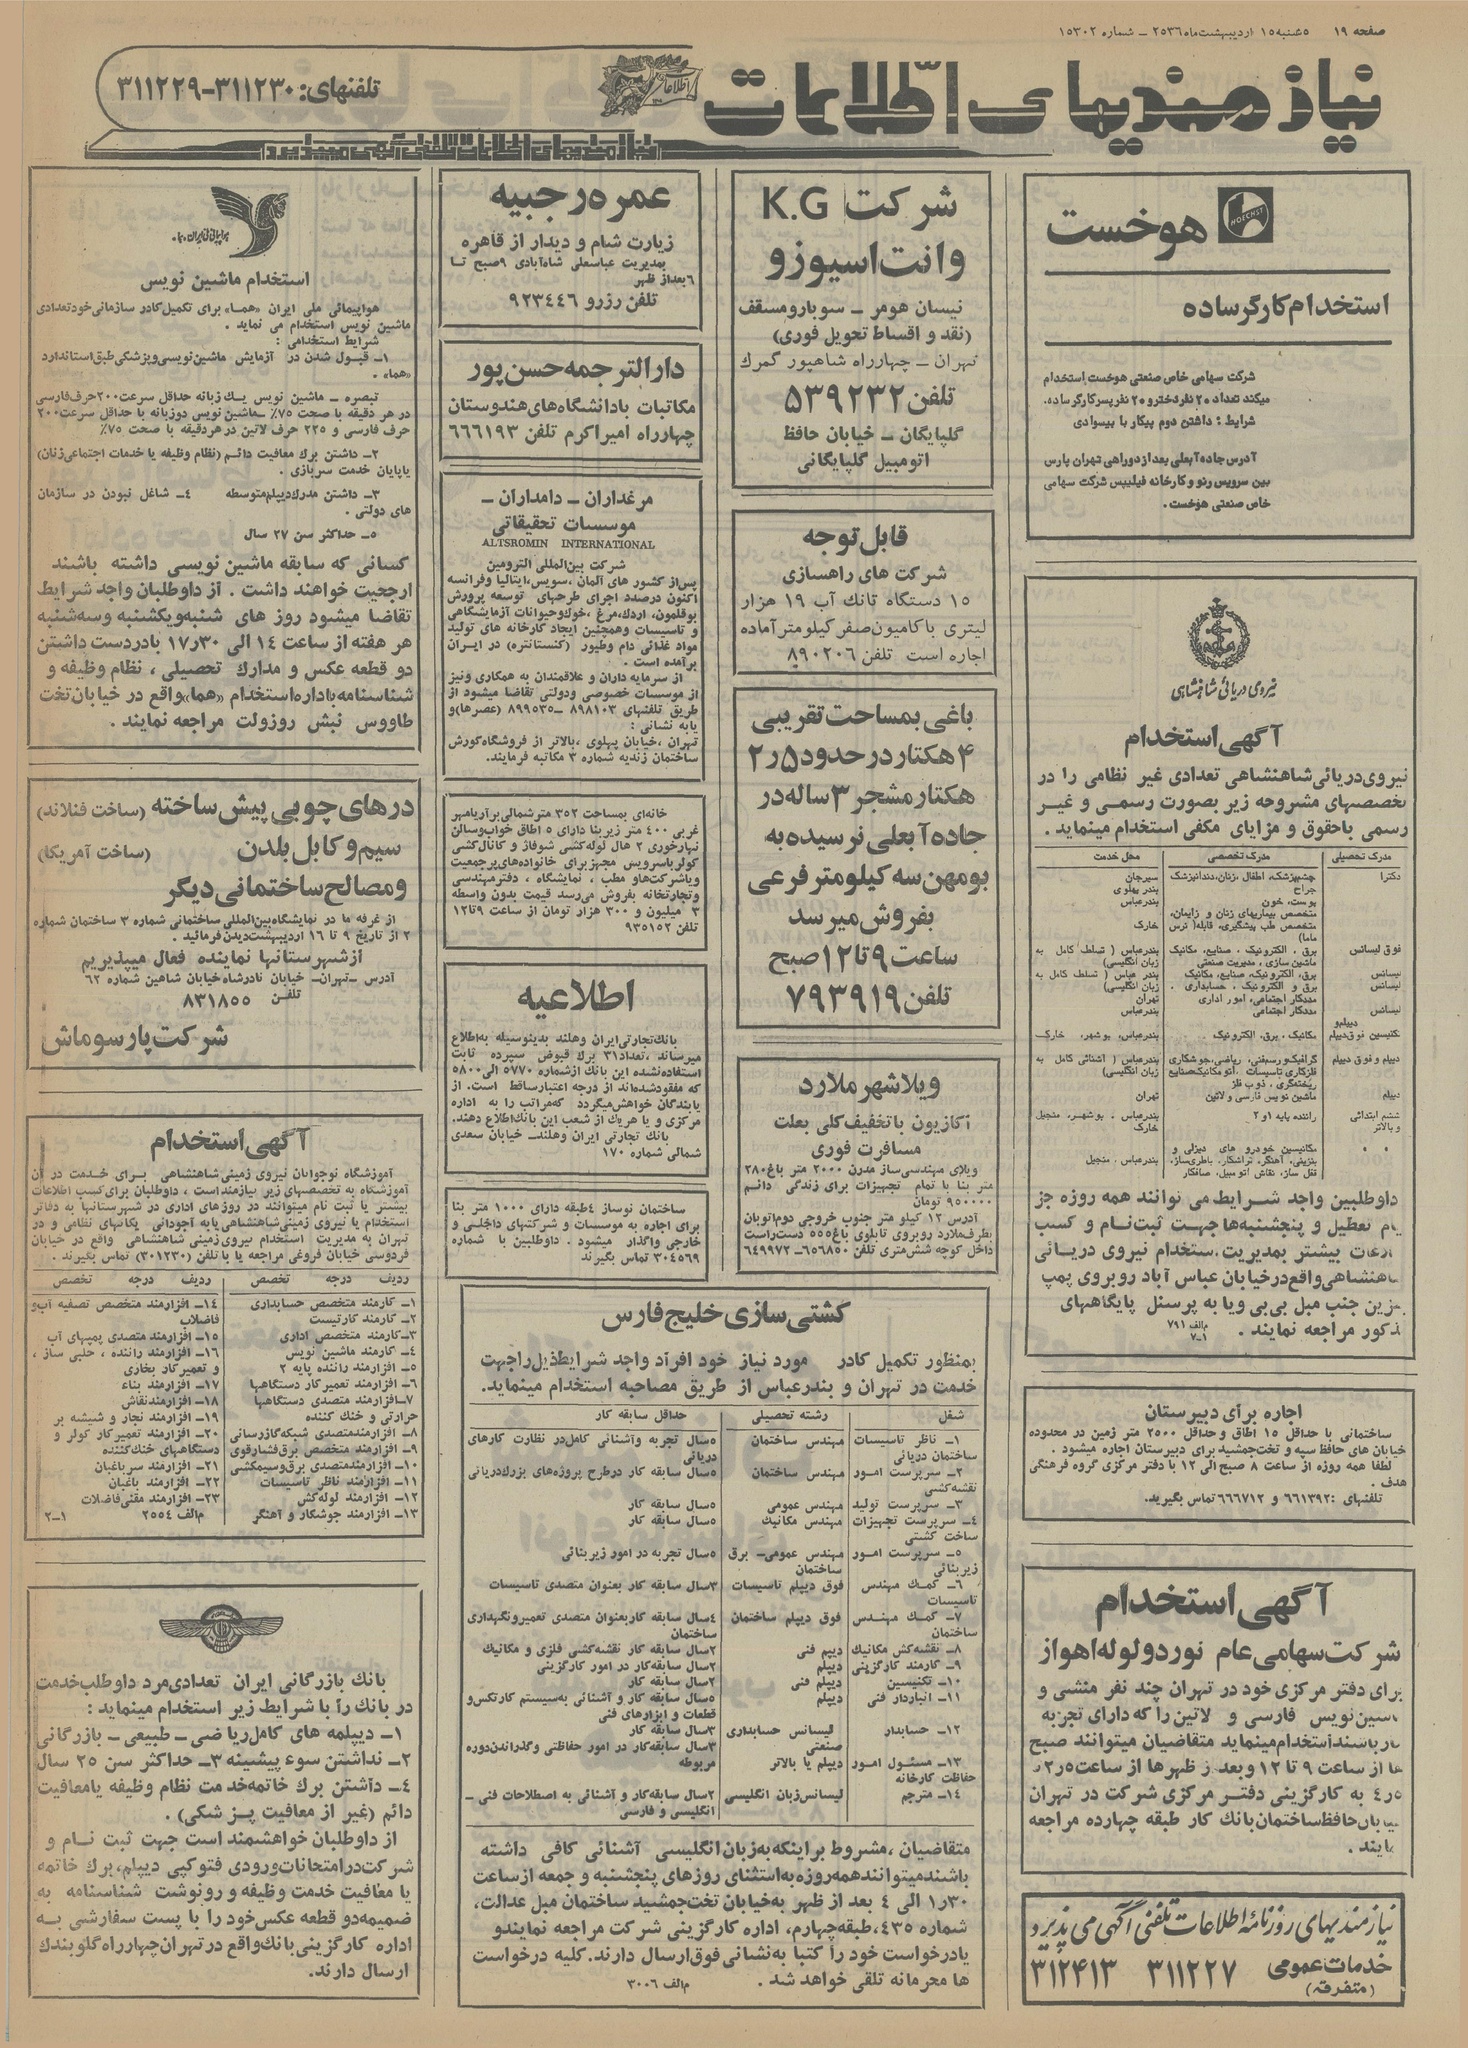 صفحه ۱۹ ۵شنبه ۱۵ اردیبهشت ماه ۲۵۳۶ ـ شماره ۱۵۳۰۲
نیازمندیهای اطلاعات
تلفنهای: ۳۱۱۲۳۰-۳۱۱۲۲۹
نیازمندیهای اطلاعات تلفنی آگهی میپذیرد
هوخست
HOECHST
استخدام کارگر ساده
شرکت سهامی خاص صنعتی هوخست استخدام
میکند تعداد ۲۰ نفر دختر و ۲۰ نفر پسر کارگر ساده.
شرایط: داشتن دوم پیکار با بیسوادی
آدرس جاده آبعلی بعد از دوراهی تهران پارس
بین سرویس رنو و کارخانه فیلیپس شرکت سهامی
خاص صنعتی هوخست.
نیروی دریائی شاهنشاهی
آگهی استخدام
نیروی دریائی شاهنشاهی تعدادی غیر نظامی را در
تخصصهای مشروحه زیر بصورت رسمی و غیر
رسمی با حقوق و مزایای مکفی استخدام مینماید.
مدرک تحصیلی مدرک تخصصی محل خدمت
دکترا چشم‌پزشک، اطفال، زنان، دندانپزشک سیرجان
جراح بندر پهلوی
پوست، خون بندرعباس
متخصص بیماریهای زنان و زایمان،
متخصص طب پیشگیری، قابله (ترس خارک
ماما)
فوق لیسانس برق، الکترونیک، صنایع، مکانیک بندرعباس (تسلط کامل به
ماشین سازی، مدیریت صنعتی زبان انگلیسی)
لیسانس برق، الکترونیک، صنایع، مکانیک بندر عباس (تسلط کامل به
لیسانس برق و الکترونیک، حسابداری. زبان انگلیسی)
مددکار اجتماعی، امور اداری تهران
لیسانس مددکار اجتماعی بندرعباس
دیپلم و
تکنیسین فوق دیپلم مکانیک، برق، الکترونیک بندرعباس، بوشهر، خارک
دیپلم و فوق دیپلم گرافیک و رسم فنی، ریاضی، جوشکاری بندرعباس (آشنائی کامل به
فلزکاری تاسیسات، اتومکانیک صنایع زبان انگلیسی)
ریخته‌گری، ذوب فلز
دیپلم ماشین نویس فارسی و لاتین تهران
ششم ابتدائی راننده پایه ۱ و ۲ بندرعباس، بوشهر، منجیل
و بالاتر خارک
مکانیسین خودرو های دیزلی و
بنزینی، آهنگر، تراشکار، باطری‌ساز، بندرعباس، منجیل
قفل ساز، نقاش اتومبیل، صافکار
داوطلبین واجد شرایط می توانند همه روزه جز
ایام تعطیل و پنجشنبه‌ها جهت ثبت نام و کسب
اطلاعات بیشتر بمدیریت استخدام نیروی دریائی
شاهنشاهی واقع در خیابان عباس آباد روبروی پمپ
بنزین جنب مبل بی بی و یا به پرسنل پایگاههای
مذکور مراجعه نمایند.
م‌الف ۷۹۱
۷-۱
اجاره برای دبیرستان
ساختمانی با حداقل ۱۵ اطاق و حداقل ۲۵۰۰ متر زمین در محدوده
خیابان های حافظ سپه و تخت جمشید برای دبیرستان اجاره میشود.
لطفا همه روزه از ساعت ۸ صبح الی ۱۲ با دفتر مرکزی گروه فرهنگی
هدف.
تلفنهای: ۶۶۱۳۹۲ و ۶۶۶۷۱۲ تماس بگیرید.
آگهی استخدام
شرکت سهامی عام نورد و لوله اهواز
برای دفتر مرکزی خود در تهران چند نفر منشی و
ماشین نویس فارسی و لاتین را که دارای تجربه
کار باشند استخدام مینماید متقاضیان میتوانند صبح
ها از ساعت ۹ تا ۱۲ و بعد از ظهرها از ساعت ۲٫۵
تا ۴٫۵ به کارگزینی دفتر مرکزی شرکت در تهران
خیابان حافظ ساختمان بانک کار طبقه چهارده مراجعه
نمایند.
نیازمندیهای روزنامهٔ اطلاعات تلفنی آگهی می پذیرد
خدمات عمومی ۳۱۱۲۲۷ ۳۱۲۴۱۳
(متفرقه)
شرکت K.G
وانت اسیوزو
نیسان هومر ـ سوبارو مسقف
(نقد و اقساط تحویل فوری)
تهران ـ چهارراه شاهپور گمرک
تلفن ۵۳۹۲۳۲
گلپایگان ـ خیابان حافظ
اتومبیل گلپایگانی
قابل توجه
شرکت های راهسازی
۱۵ دستگاه تانک آب ۱۹ هزار
لیتری با کامیون صفر کیلومتر آماده
اجاره است تلفن ۸۹۰۲۰۶
باغی بمساحت تقریبی
۴ هکتار در حدود ۲٫۵
هکتار مشجر ۳ ساله در
جاده آبعلی نرسیده به
بومهن سه کیلومتر فرعی
بفروش میرسد
ساعت ۹ تا ۱۲ صبح
تلفن ۷۹۳۹۱۹
ویلاشهر ملارد
آکازیون با تخفیف کلی بعلت
مسافرت فوری
ویلای مهندسی‌ساز مدرن ۲۰۰۰ متر باغ ۲۸۰
متر بنا با تمام تجهیزات برای زندگی دائم
۹۵۰۰۰۰ تومان
آدرس ۱۲ کیلو متر جنوب خروجی دوم اتوبان
بطرف ملارد روبروی تابلوی باغ ۵۵۵ دست راست
داخل کوچه شش متری تلفن ۶۵۶۸۵۰- ۶۴۹۹۷۳
عمره رجبیه
زیارت شام و دیدار از قاهره
بمدیریت عباسعلی شاه‌آبادی ۹صبح تا
۶بعداز ظهر
تلفن رزرو ۹۲۳۴۴۶
دارالترجمه حسن پور
مکاتبات با دانشگاه های هندوستان
چهارراه امیراکرم تلفن ۶۶۶۱۹۳
مرغداران ـ دامداران ـ
موسسات تحقیقاتی
ALTSROMIN INTERNATIONAL
شرکت بین‌المللی الترومین
پس از کشور های آلمان، سویس، ایتالیا و فرانسه
اکنون درصدد اجرای طرحهای توسعه پرورش
بوقلمون، اردک، مرغ، خوک و حیوانات آزمایشگاهی
و تاسیسات و همچنین ایجاد کارخانه های تولید
مواد غذائی دام و طیور (کنسانتره) در ایران
برآمده است.
از سرمایه داران و علاقمندان به همکاری و نیز
از موسسات خصوصی و دولتی تقاضا میشود از
طریق تلفنهای ۸۹۸۱۰۳ ـ ۸۹۹۵۳۵ (عصرها) و
یا به نشانی:
تهران، خیابان پهلوی، بالاتر از فروشگاه کورش
ساختمان زندیه شماره ۳ مکاتبه فرمایند.
خانه‌ای بمساحت ۳۵۲ متر شمالی بر آریامهر
غربی ۴۰۰ متر زیربنا دارای ۵ اطاق خواب و سالن
نهارخوری ۲ هال لوله‌کشی شوفاژ و کانال‌کشی
کولر با سرویس مجهز برای خانواده‌های پرجمعیت
و یا شرکت‌ها و مطب، نمایشگاه، دفتر مهندسی
و تجارتخانه بفروش می‌رسد قیمت بدون واسطه
۳ میلیون و ۳۰۰ هزار تومان از ساعت ۹ تا ۱۲
تلفن ۹۳۵۱۵۲
اطلاعیه
بانک تجارتی ایران و هلند بدینوسیله به اطلاع
میرساند، تعداد ۳۱ برگ قبوض سپرده ثابت
استفاده نشده این بانک از شماره ۵۷۷۰ الی ۵۸۰۰
که مفقود شده‌اند از درجه اعتبار ساقط است. از
یابندگان خواهش میگردد که مراتب را به اداره
مرکزی و یا هریک از شعب این بانک اطلاع دهند.
بانک تجارتی ایران و هلند ـ خیابان سعدی
شمالی شماره ۱۷۰
ساختمان نوساز ۴طبقه دارای ۱۰۰۰ متر بنا
برای اجاره به موسسات و شرکتهای داخلی و
خارجی واگذار میشود. داوطلبین با شماره
۳۰۴۵۶۹ تماس بگیرند
کشتی سازی خلیج فارس
بمنظور تکمیل کادر مورد نیاز خود افراد واجد شرایط ذیل را جهت
خدمت در تهران و بندرعباس از طریق مصاحبه استخدام مینماید.
شغل رشته تحصیلی حداقل سابقه کار
۱ـ ناظر تاسیسات مهندس ساختمان ۵سال تجربه و آشنائی کامل در نظارت کارهای
ساختمان دریائی دریائی
۲ـ سرپرست امور مهندس ساختمان ۵سال سابقه کار در طرح پروژه‌های بزرگ دریائی
نقشه‌کشی
۳ـ سرپرست تولید مهندس عمومی ۵سال سابقه کار
۴ـ سرپرست تجهیزات مهندس مکانیک ۵سال سابقه کار
ساخت کشتی
۵ـ سرپرست امور مهندس عمومی ـ برق ۵سال تجربه در امور زیربنائی
زیربنائی ساختمان
۶ـ کمک مهندس فوق دیپلم تاسیسات ۳سال سابقه کار بعنوان متصدی تاسیسات
تاسیسات
۷ـ کمک مهندس فوق دیپلم ساختمان ۴سال سابقه کار بعنوان متصدی تعمیر و نگهداری
ساختمان ساختمان
۸ـ نقشه‌کش مکانیک دیپم فنی ۲سال سابقه کار نقشه‌کشی فلزی و مکانیک
۹ـ کارمند کارگزینی دیپلم ۲سال سابقه کار در امور کارگزینی
۱۰ـ تکنیسین دیپلم فنی ۲سال سابقه کار
۱۱ـ انباردار فنی دیپلم ۵سال سابقه کار و آشنائی به سیستم کارتکس و
قطعات و ابزارهای فنی
۱۲ـ حسابدار لیسانس حسابداری ۳سال سابقه کار
صنعتی
۱۳ـ مسئول امور دیپلم یا بالاتر ۳سال سابقه کار در امور حفاظتی و گذراندن دوره
حفاظت کارخانه مربوطه
۱۴ـ مترجم لیسانس زبان انگلیسی ۲سال سابقه کار و آشنائی به اصطلاحات فنی ـ
انگلیسی و فارسی
متقاضیان، مشروط بر اینکه به زبان انگلیسی آشنائی کافی داشته
باشند میتوانند همه روزه به استثنای روزهای پنجشنبه و جمعه از ساعت
۱٫۳۰ الی ۴ بعد از ظهر به خیابان تخت جمشید ساختمان مبل عدالت،
شماره ۴۳۵، طبقه چهارم، اداره کارگزینی شرکت مراجعه نمایند و
یا درخواست خود را کتبا به نشانی فوق ارسال دارند. کلیه درخواست
ها محرمانه تلقی خواهد شد.
م‌الف ۳۰۰۶
هواپیمائی ملی ایران «هما»
استخدام ماشین نویس
هواپیمائی ملی ایران «هما» برای تکمیل کادر سازمانی خود تعدادی
ماشین نویس استخدام می نماید.
شرایط استخدامی:
۱ـ قبول شدن در آزمایش ماشین نویسی و پزشکی طبق استاندارد
«هما».
تبصره ـ ماشین نویس یک زبانه حداقل سرعت ۲۰۰ حرف فارسی
در هر دقیقه با صحت ۷۵٪ ـ ماشین نویس دو زبانه با حداقل سرعت ۲۰۰
حرف فارسی و ۲۲۵ حرف لاتین در هر دقیقه با صحت ۷۵٪
۲ـ داشتن برگ معافیت دائم (نظام وظیفه یا خدمات اجتماعی زنان)
یا پایان خدمت سربازی.
۳ـ داشتن مدرک دیپلم متوسطه ۴ـ شاغل نبودن در سازمان
های دولتی.
۵ـ حداکثر سن ۲۷ سال
کسانی که سابقه ماشین نویسی داشته باشند
ارجحیت خواهند داشت. از داوطلبان واجد شرایط
تقاضا میشود روز های شنبه و یکشنبه و سه شنبه
هر هفته از ساعت ۱۴ الی ۱۷٫۳۰ با در دست داشتن
دو قطعه عکس و مدارک تحصیلی، نظام وظیفه و
شناسنامه به اداره استخدام «هما» واقع در خیابان تخت
طاووس نبش روزولت مراجعه نمایند.
درهای چوبی پیش ساخته (ساخت فنلاند)
سیم و کابل بلدن (ساخت آمریکا)
و مصالح ساختمانی دیگر
از غرفه ما در نمایشگاه بین‌المللی ساختمانی شماره ۳ ساختمان شماره
۲ از تاریخ ۹ تا ۱۶ اردیبهشت دیدن فرمائید.
از شهرستانها نماینده فعال میپذیریم
آدرس ـ تهران ـ خیابان نادرشاه خیابان شاهین شماره ۶۲
تلفن ۸۳۱۸۵۵
شرکت پارسوماش
آگهی استخدام
آموزشگاه نوجوانان نیروی زمینی شاهنشاهی برای خدمت در آن
آموزشگاه به تخصصهای زیر نیازمند است، داوطلبان برای کسب اطلاعات
بیشتر یا ثبت نام میتوانند در روزهای اداری در شهرستانها به دفاتر
استخدام یا نیروی زمینی شاهنشاهی یا به آجودانی یگانهای نظامی و در
تهران به مدیریت استخدام نیروی زمینی شاهنشاهی واقع در خیابان
فردوسی خیابان فروغی مراجعه یا با تلفن (۳۰۱۲۳۰) تماس بگیرند.
ردیف درجه تخصص
۱ـ کارمند متخصص حسابداری
۲ـ کارمند کارتیست
۳ـ کارمند متخصص اداری
۴ـ کارمند ماشین نویس
۵ـ افزارمند راننده پایه ۲
۶ـ افزارمند تعمیرکار دستگاهها
۷ـ افزارمند متصدی دستگاهها
حرارتی و خنک کننده
۸ـ افزارمند متصدی شبکه گازرسانی
۹ـ افزارمند متخصص برق فشار قوی
۱۰ـ افزارمند متصدی برق و سیمکشی
۱۱ـ افزارمند ناظر تاسیسات
۱۲ـ افزارمند لوله‌کش
۱۳ـ افزارمند جوشکار و آهنگر
ردیف درجه تخصص
۱۴ـ افزارمند متخصص تصفیه آب و
فاضلاب
۱۵ـ افزارمند متصدی پمپهای آب
۱۶ـ افزارمند راننده، حلبی ساز،
و تعمیرکار بخاری
۱۷ـ افزارمند بناء
۱۸ـ افزارمند نقاش
۱۹ـ افزارمند نجار و شیشه بر
۲۰ـ افزارمند تعمیرکار کولر و
دستگاههای خنک کننده
۲۱ـ افزارمند سرباغبان
۲۲ـ افزارمند باغبان
۲۳ـ افزارمند مقنی فاضلات
م‌الف ۲۵۵۴ ۲-۱
بانک بازرگانی ایران تعدادی مرد داوطلب خدمت
در بانک را با شرایط زیر استخدام مینماید:
۱ـ دیپلمه های کامل ریاضی ـ طبیعی ـ بازرگانی
۲ـ نداشتن سوء پیشینه ۳ـ حداکثر سن ۲۵ سال
۴ـ داشتن برگ خاتمه خدمت نظام وظیفه یا معافیت
دائم (غیر از معافیت پزشکی).
از داوطلبان خواهشمند است جهت ثبت نام و
شرکت در امتحانات ورودی فتوکپی دیپلم، برگ خاتمه
یا معافیت خدمت وظیفه و رونوشت شناسنامه به
ضمیمه دو قطعه عکس خود را با پست سفارشی به
اداره کارگزینی بانک واقع در تهران چهارراه گلوبندک
ارسال دارند.